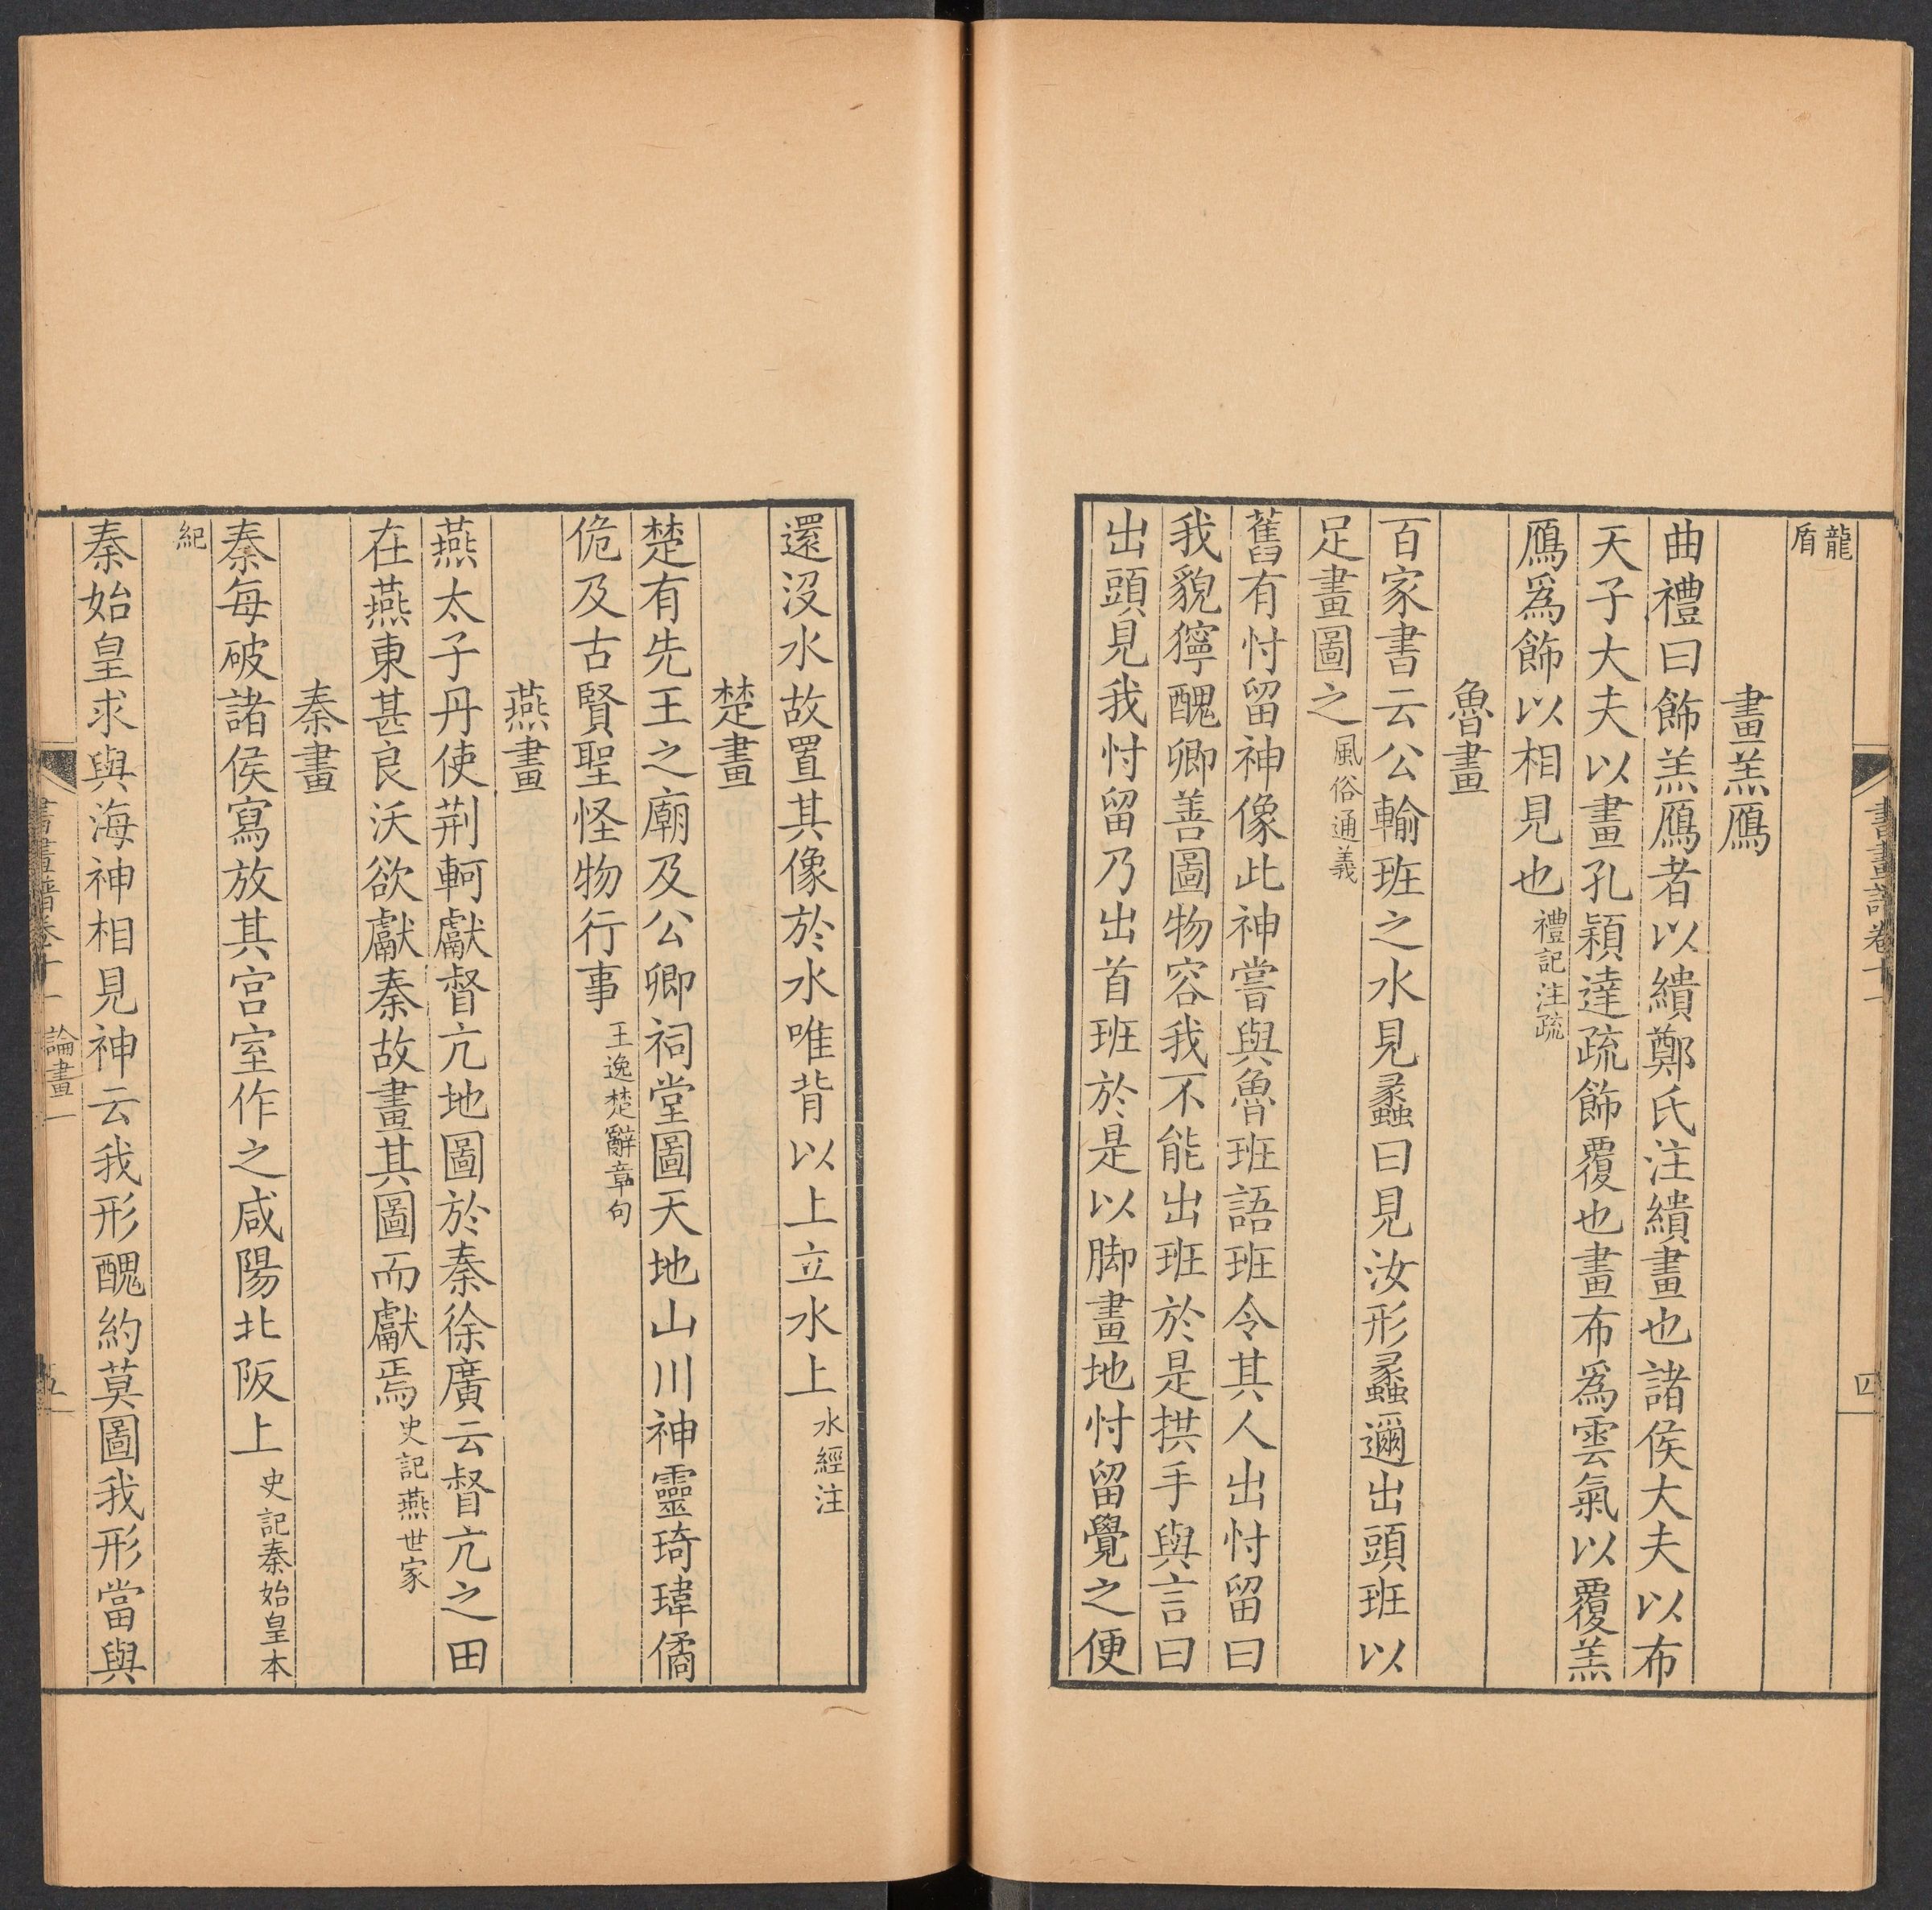 書畫譜卷十一
四
龍
盾
畫羔鴈
曲禮曰飾羔鴈者以繢鄭氏注繢畫也諸侯大夫以布
天子大夫以畫孔穎達疏飾覆也畫布爲雲氣以覆羔
鴈爲飾以相見也禮記注疏
魯畫
百家書云公輸班之水見蠡曰見汝形蠡邇出頭班以
足畫圖之風俗通義
舊有忖留神像此神嘗與魯班語班令其人出忖留曰
我貌獰醜卿善圖物容我不能出班於是拱手與言曰
出頭見我忖留乃出首班於是以脚畫地忖留覺之便
還沒水故置其像於水唯背以上立水上水經注
楚畫
楚有先王之廟及公卿祠堂圖天地山川神靈琦瑋僪
佹及古賢聖怪物行事王逸楚辭章句
燕畫
燕太子丹使荆軻獻督亢地圖於秦徐廣云督亢之田
在燕東甚良沃欲獻秦故畫其圖而獻焉史記燕世家
秦畫
秦每破諸侯寫放其宫室作之咸陽北阪上史記秦始皇本
紀
秦始皇求與海神相見神云我形醜約莫圖我形當與
書畫譜卷十一 論畫一
五